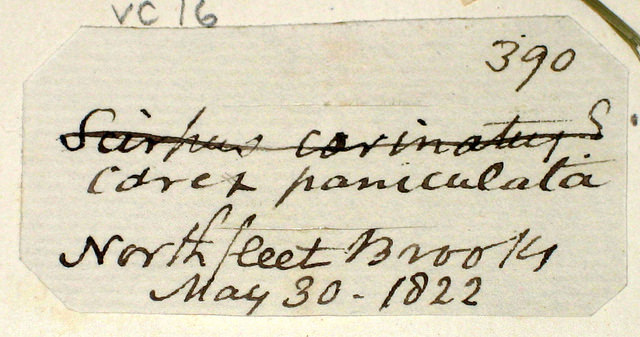 VC 16
390
Scirpus carinatus S
Carex paniculata
Northfleet Brooks
May 30 - 1822